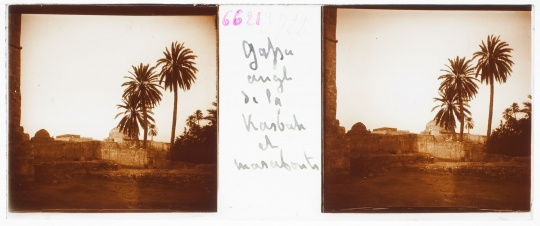 6621
Gafsa
angl
de la
Kasbah
et
marabouts